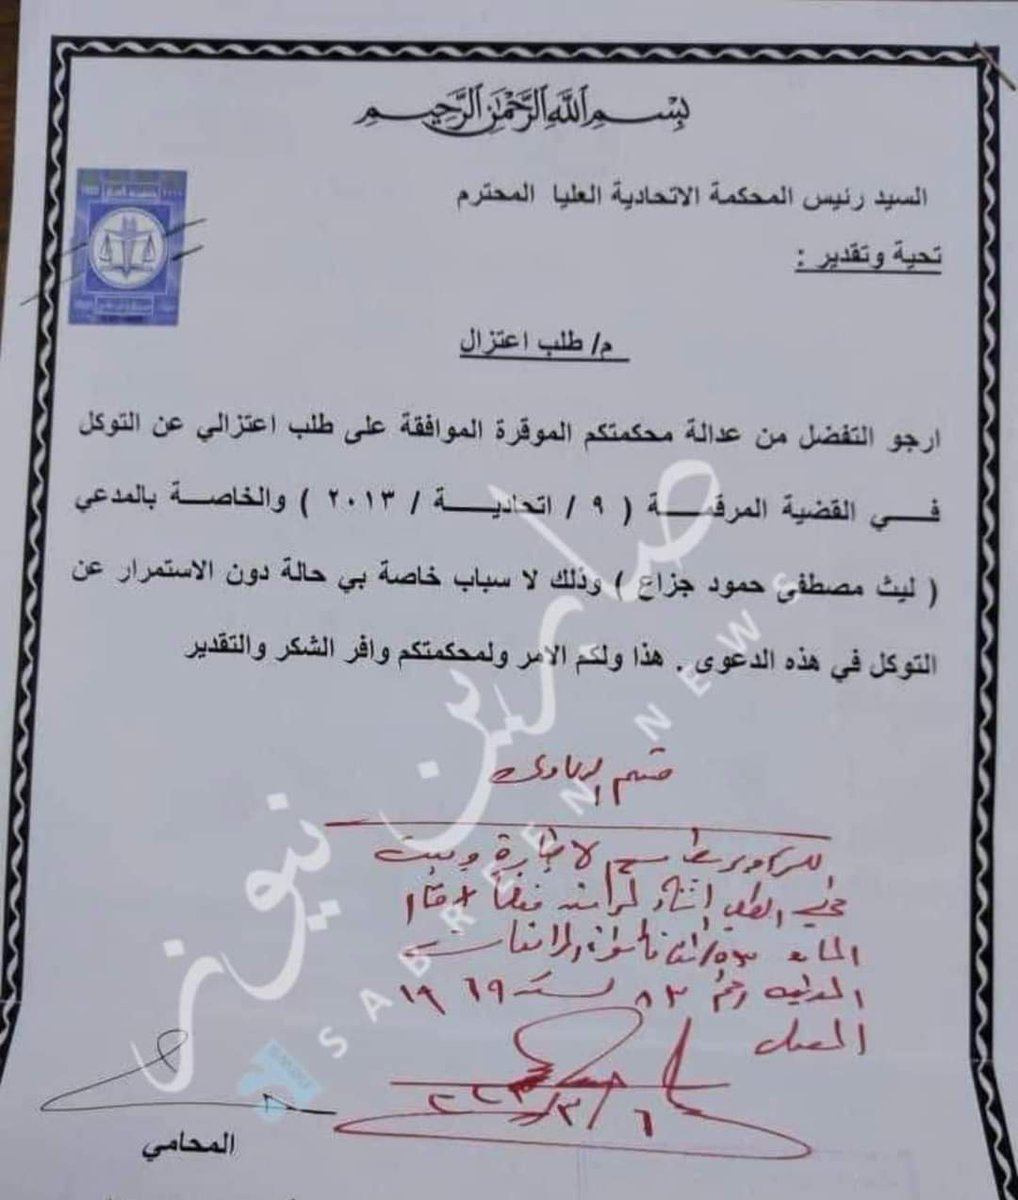 بسم الله الرحمن الرحيم
السيد رئيس المحكمة الاتحادية العليا المحترم
تحية وتقدير :
م/ طلب اعتزال
ارجو التفضل من عدالة محكمتكم الموقرة الموافقة على طلب اعتزالي عن التوكل
في القضية المرقمة ( ٩ / اتحادية / ٢٠١٣ ) والخاصة بالمدعي
( ليث مصطفى حمود جزاع ) وذلك لا سباب خاصة بي حالة دون الاستمرار عن
التوكل في هذه الدعوى . هذا ولكم الامر ولمحكمتكم وافر الشكر والتقدير
صابرين نيوز
SABREEN NEWS
قسم الدعاوى
المدنية رقم ٨٣ لسنة ١٩٦٩
المعدل
٦/٣/٢٠٢٣
المحامي